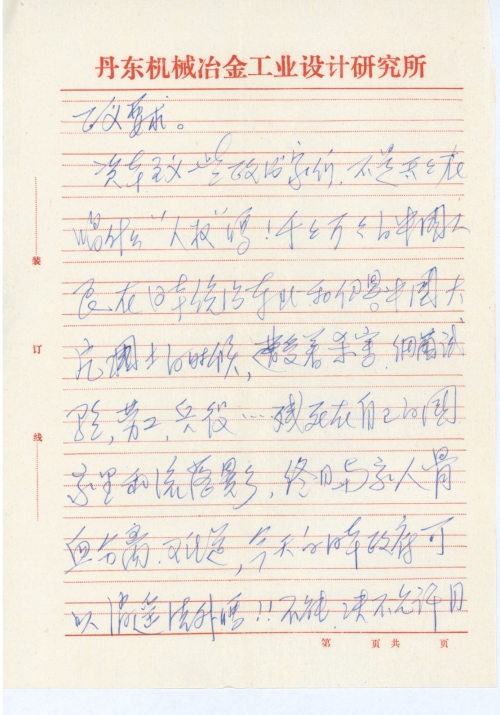 丹东机械冶金工业设计研究所
正义要求。
资本主义一些政治家们,不是天天在
唱什么“人权”吗!千千万万的中国人
民在日本统治东北和侵略中国大
片国土的时候,遭受着杀害,细菌试
验,劳工,兵役…残死在自己的国
家里和流落异乡,终日与家人骨
血分离.难道,今天的日本政府可
以逍遥法外吗!!不能,决不允许日
装
订
线
第 页 共 页